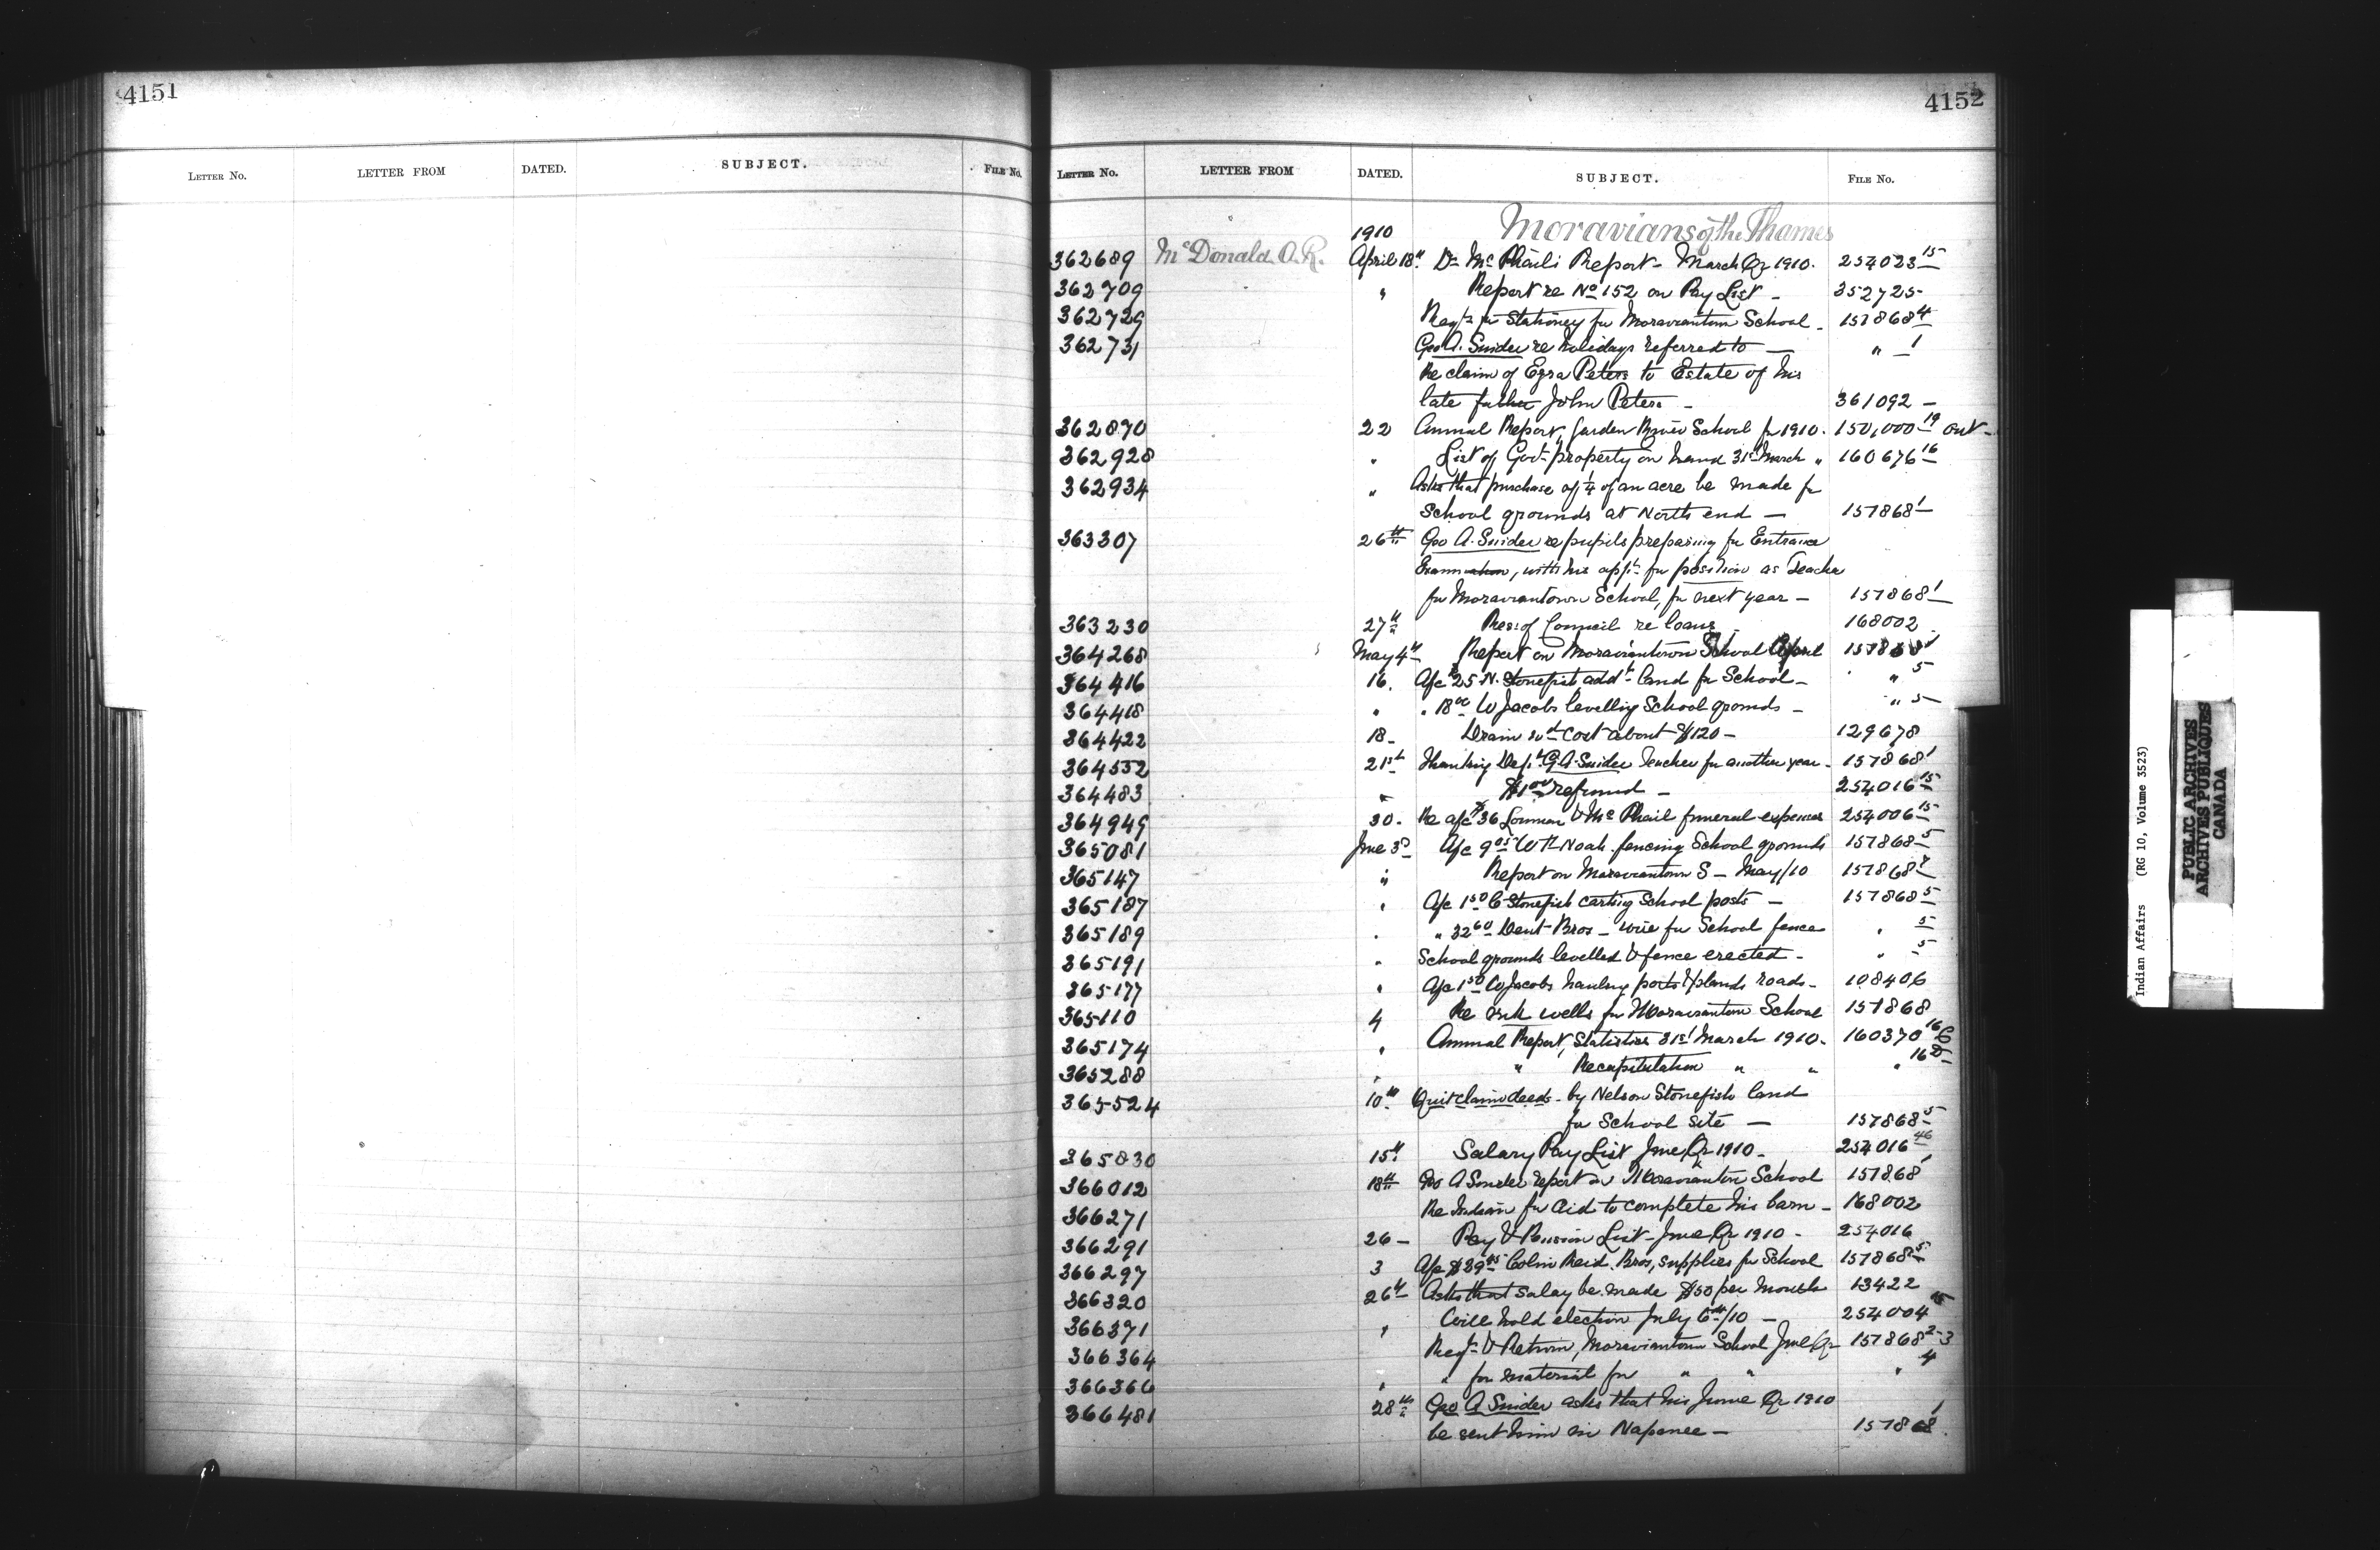 4151
LETTER No. LETTER FROM DATED. SUBJECT. FILE No.
4152
LETTER No. LETTER FROM DATED. SUBJECT. FILE No.
1910 Moravians of the Thames
362689 McDonald A.R. April 18th Dr McPhail's Report - March Qr 1910. 254023 15
362709 " Report re No 152 on Pay List - 352725
362729 Reqtn for Stationey for Moraviantown School - 157868 4
362731 Geo A. Snider re holidays referred to — " 1
Re claim of Ezra Peters to Estate of his
late father John Peters - 361092 -
362870 22 Annual Report, Garden River School for 1910. 150,000 19 ont-
362928 " List of Govt property on hand 31st March " 160676 16
362934 " Asks that purchase of ¼ of an acre be made for
School grounds at North end — 157868 1
363307 26th Geo A. Snider re pupils preparing for Entrance
Examination, with his appn for position as Teacher
for Moraviantown School, for next year - 157868 1
363230 27th Res: of Council re loans 168002
364268 May 4th Report on Moraviantown School April 157868
364416 16. A/c 25 N. Stonefish addl land for School - " 5
364418 " " 18 00 W Jacobs levelling School grounds - " 5
364422 18 - Drain wd cost about $120 - 129678
364552 21st Thanking Dept G.A. Snider Teacher for another year - 157868 1
364483 " $1 00 refund - 254016 15
364949 30. Re a/c 36 & McPhail funeral expenses 254006 15
365081 June 3d A/c 9 05 Noah fencing School grounds 157868 5
365147 " Report on Moraviantown S - May/10 157868
365187 " A/c 1 50 C Stonefish carting School posts — 157868 5
365189 " " 32 60 Dent Bros - wire for School fence " 5
365191 " School grounds levelled & fence erected - " 5
365177 " A/c 1 50 W Jacobs hauling posts roads - 108406
365110 4 Re wells for Moraviantown School 157868
365174 " Annual Report, Statistics 31st March 1910. 160370 16
365288 " " Recapitulation " " " 16
365524 10th Quit claim deeds - by Nelson Stonefish land
for School site — 157868 5
365830 15th Salary Pay List June Qr 1910 - 254016 46
366012 18th Geo A Snider report on Moraviantown School 157868 1
366271 Re Indian for aid to complete his barn - 168002
366291 26 - Pay & Pension List - June Qr 1910 - 254016
366297 3 A/c $39 Colin Reid Bros, supplies for School 157868 5
366320 26th Asks that salay be made $50 per month 13422
366371 " Will hold election July 6th/10 — 254004 15
366364 Reqt & Return, Moraviantown School June Qr 157868 2-3
366366 " " for material for " " " 4
366481 28th Geo A Snider asks that his June Qr 1910
be sent him in Napanee - 157868 1
Indian Affairs (RG 10, Volume 3523)
PUBLIC ARCHIVES
ARCHIVES PUBLIQUES
CANADA